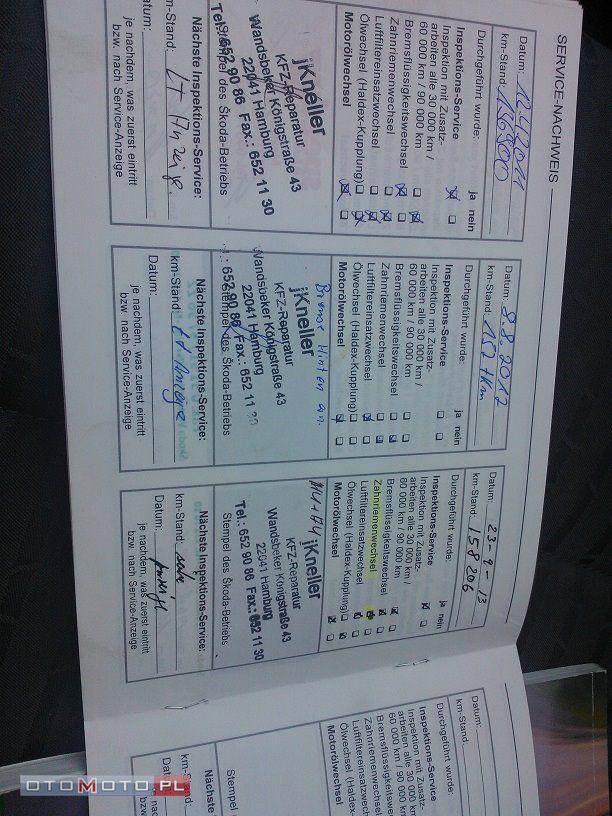 SERVICE-NACHWEIS
Datum: 12.4.2011
km-Stand: 146800
Durchgeführt wurde:
ja nein
Inspektions-Service
Inspektion mit Zusatz-
arbeiten alle 30 000 km /
60 000 km / 90 000 km
Bremsflüssigkeitswechsel
Zahnriemenwechsel
Luftfiltereinsatzwechsel
Ölwechsel (Haldex-Kupplung)
Motorölwechsel
jKneller
KFZ-Reparatur
Wandsbeker Königstraße 43
22041 Hamburg
Tel.: 652 90 86 Fax.: 652 11 30
Stempel des Škoda-Betriebs
Nächste Inspektions-Service:
km-Stand: Lt Anzeige
Datum:
je nachdem, was zuerst eintritt
bzw. nach Service-Anzeige
Datum: 8.8.2012
km-Stand: 152 tkm
Durchgeführt wurde:
ja nein
Inspektions-Service
Inspektion mit Zusatz-
arbeiten alle 30 000 km /
60 000 km / 90 000 km
Bremsflüssigkeitswechsel
Zahnriemenwechsel
Luftfiltereinsatzwechsel
Ölwechsel (Haldex-Kupplung)
Motorölwechsel
Bremse hinten ern.
jKneller
KFZ-Reparatur
Wandsbeker Königstraße 43
22041 Hamburg
: 652 90 86 Fax.: 652 11 30
Stempel des Škoda-Betriebs
Nächste Inspektions-Service:
km-Stand: Lt. Anzeige
Datum:
je nachdem, was zuerst eintritt
bzw. nach Service-Anzeige
Datum: 23-9-13
km-Stand: 158206
Durchgeführt wurde:
ja nein
Inspektions-Service
Inspektion mit Zusatz-
arbeiten alle 30 000 km /
60 000 km / 90 000 km
Bremsflüssigkeitswechsel
Zahnriemenwechsel
Luftfiltereinsatzwechsel
Ölwechsel (Haldex-Kupplung)
Motorölwechsel
jKneller
KFZ-Reparatur
Wandsbeker Königstraße 43
22041 Hamburg
Tel.: 652 90 86 Fax.: 652 11 30
Stempel des Škoda-Betriebs
Nächste Inspektions-Service:
km-Stand:
Datum:
je nachdem, was zuerst eintritt
bzw. nach Service-Anzeige
Datum:
km-Stand:
Durchgeführt wurde:
Inspektions-Service
Inspektion mit Zusatz-
arbeiten alle 30 000 km /
60 000 km / 90 000 km
Bremsflüssigkeitswechsel
Zahnriemenwechsel
Luftfiltereinsatzwechsel
Ölwechsel (Haldex-
Motorölwechsel
Stempel
Nächste
km-
Datum
je n
bzw.
OTOMOTO.PL